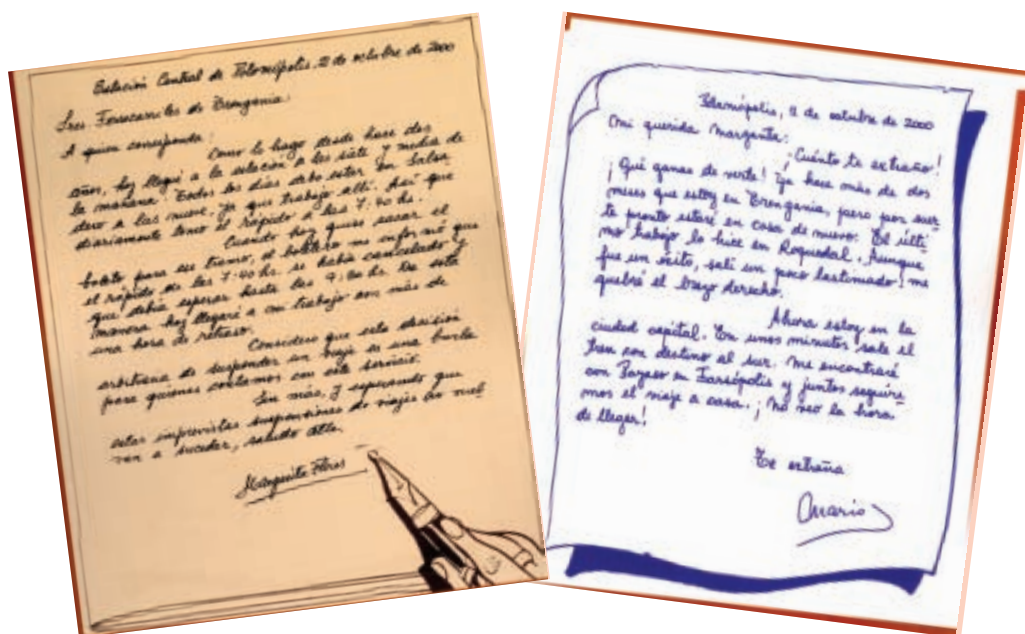 Estación Central de Potomépolis, 2 de octubre de 2000
Sres. Ferrocarriles de Trengania:
A quien corresponda:
Como lo hago desde hace dos
años, hoy llegué a la estación a las siete y media de
la mañana. Todos los días debo estar en Balsa
dero a las nueve, ya que trabajo allí. Así que
diariamente tomo el rápido a las 7:40 hs.
Cuando hoy quise sacar el
boleto para ese tramo, el boletero me informó que
el rápido de las 7:40 hs. se había cancelado y
que debía esperar hasta las De esta
manera hoy llegaré a mi trabajo con más de
una hora de retraso.
Considero que esta decisión
arbitraria de suspender un viaje es una burla
para quienes contamos con este servicio.
Sin más, y esperando que
estas imprevistas suspensiones de viajes no vuel
van a suceder, saluda atte.
Margarita Flores
2 de octubre de 2000
Mi querida Margarita:
¡Cuánto te extraño!
¡Qué ganas de verte! Ya hace más de dos
meses que estoy en Trengania, pero por suer
te pronto estaré en casa de nuevo. El últi
mo trabajo lo hice en Roquedal. Aunque
fue un éxito, salí un poco lastimado: me
quebré el brazo derecho.
Ahora estoy en la
ciudad capital. En unos minutos sale el
tren con destino al sur. Me encontraré
con Payaso en Farsópolis y juntos seguire
mos el viaje a casa. ¡No veo la hora
de llegar!
Te extraña
Mario